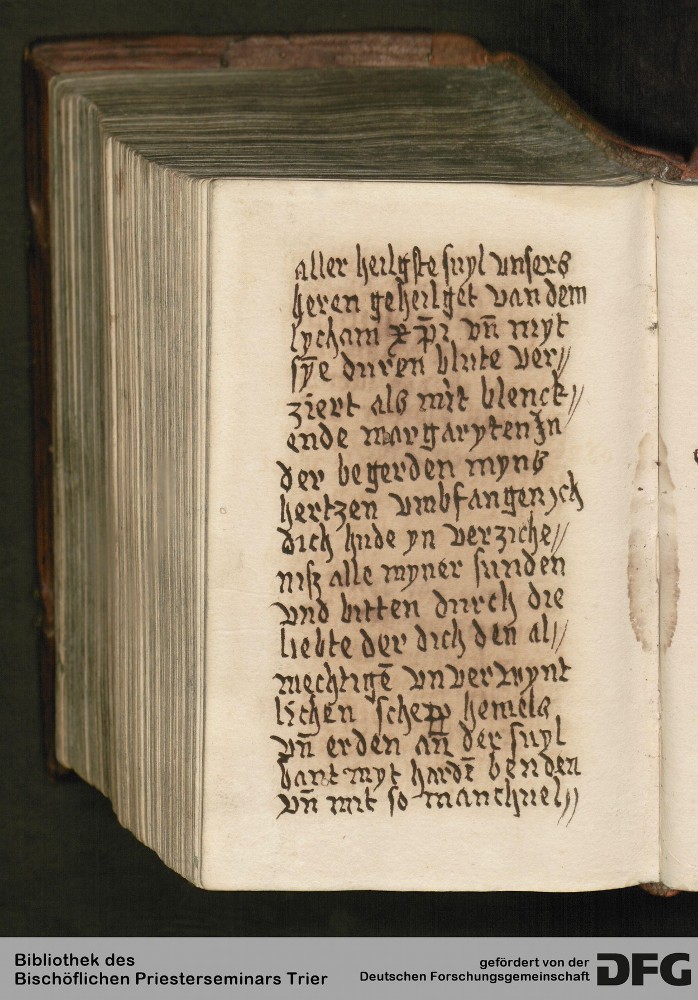 aller heilgste suyl unsers
heren geheilget van dem
lycham xp̄i vn̄ myt
sȳe duren blute ver//
ziert als mit blenck//
ende margaryten In
der begerden myns
hertzen vmbfangen ych
dich hude yn verziche//
nisz alle myner sunden
vnd bitten durch die
liebte der dich den al//
mechtigē vnverwynt
lichen schepp hemels
vn̄ erden an̄ der suyl
bant myt hardē benden
vn̄ mit so manchuel//
Bibliothek des
Bischöflichen Priesterseminars Trier
gefördert von der
Deutschen Forschungsgemeinschaft
DFG